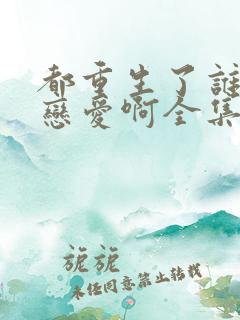 都重生了誰
戀愛啊全集
旎旎
未经同意禁止转载